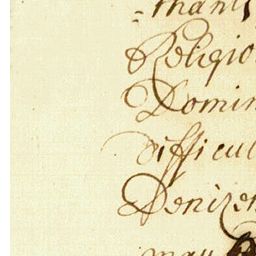 - thank
Religio
Domin
difficul
Denizen
may